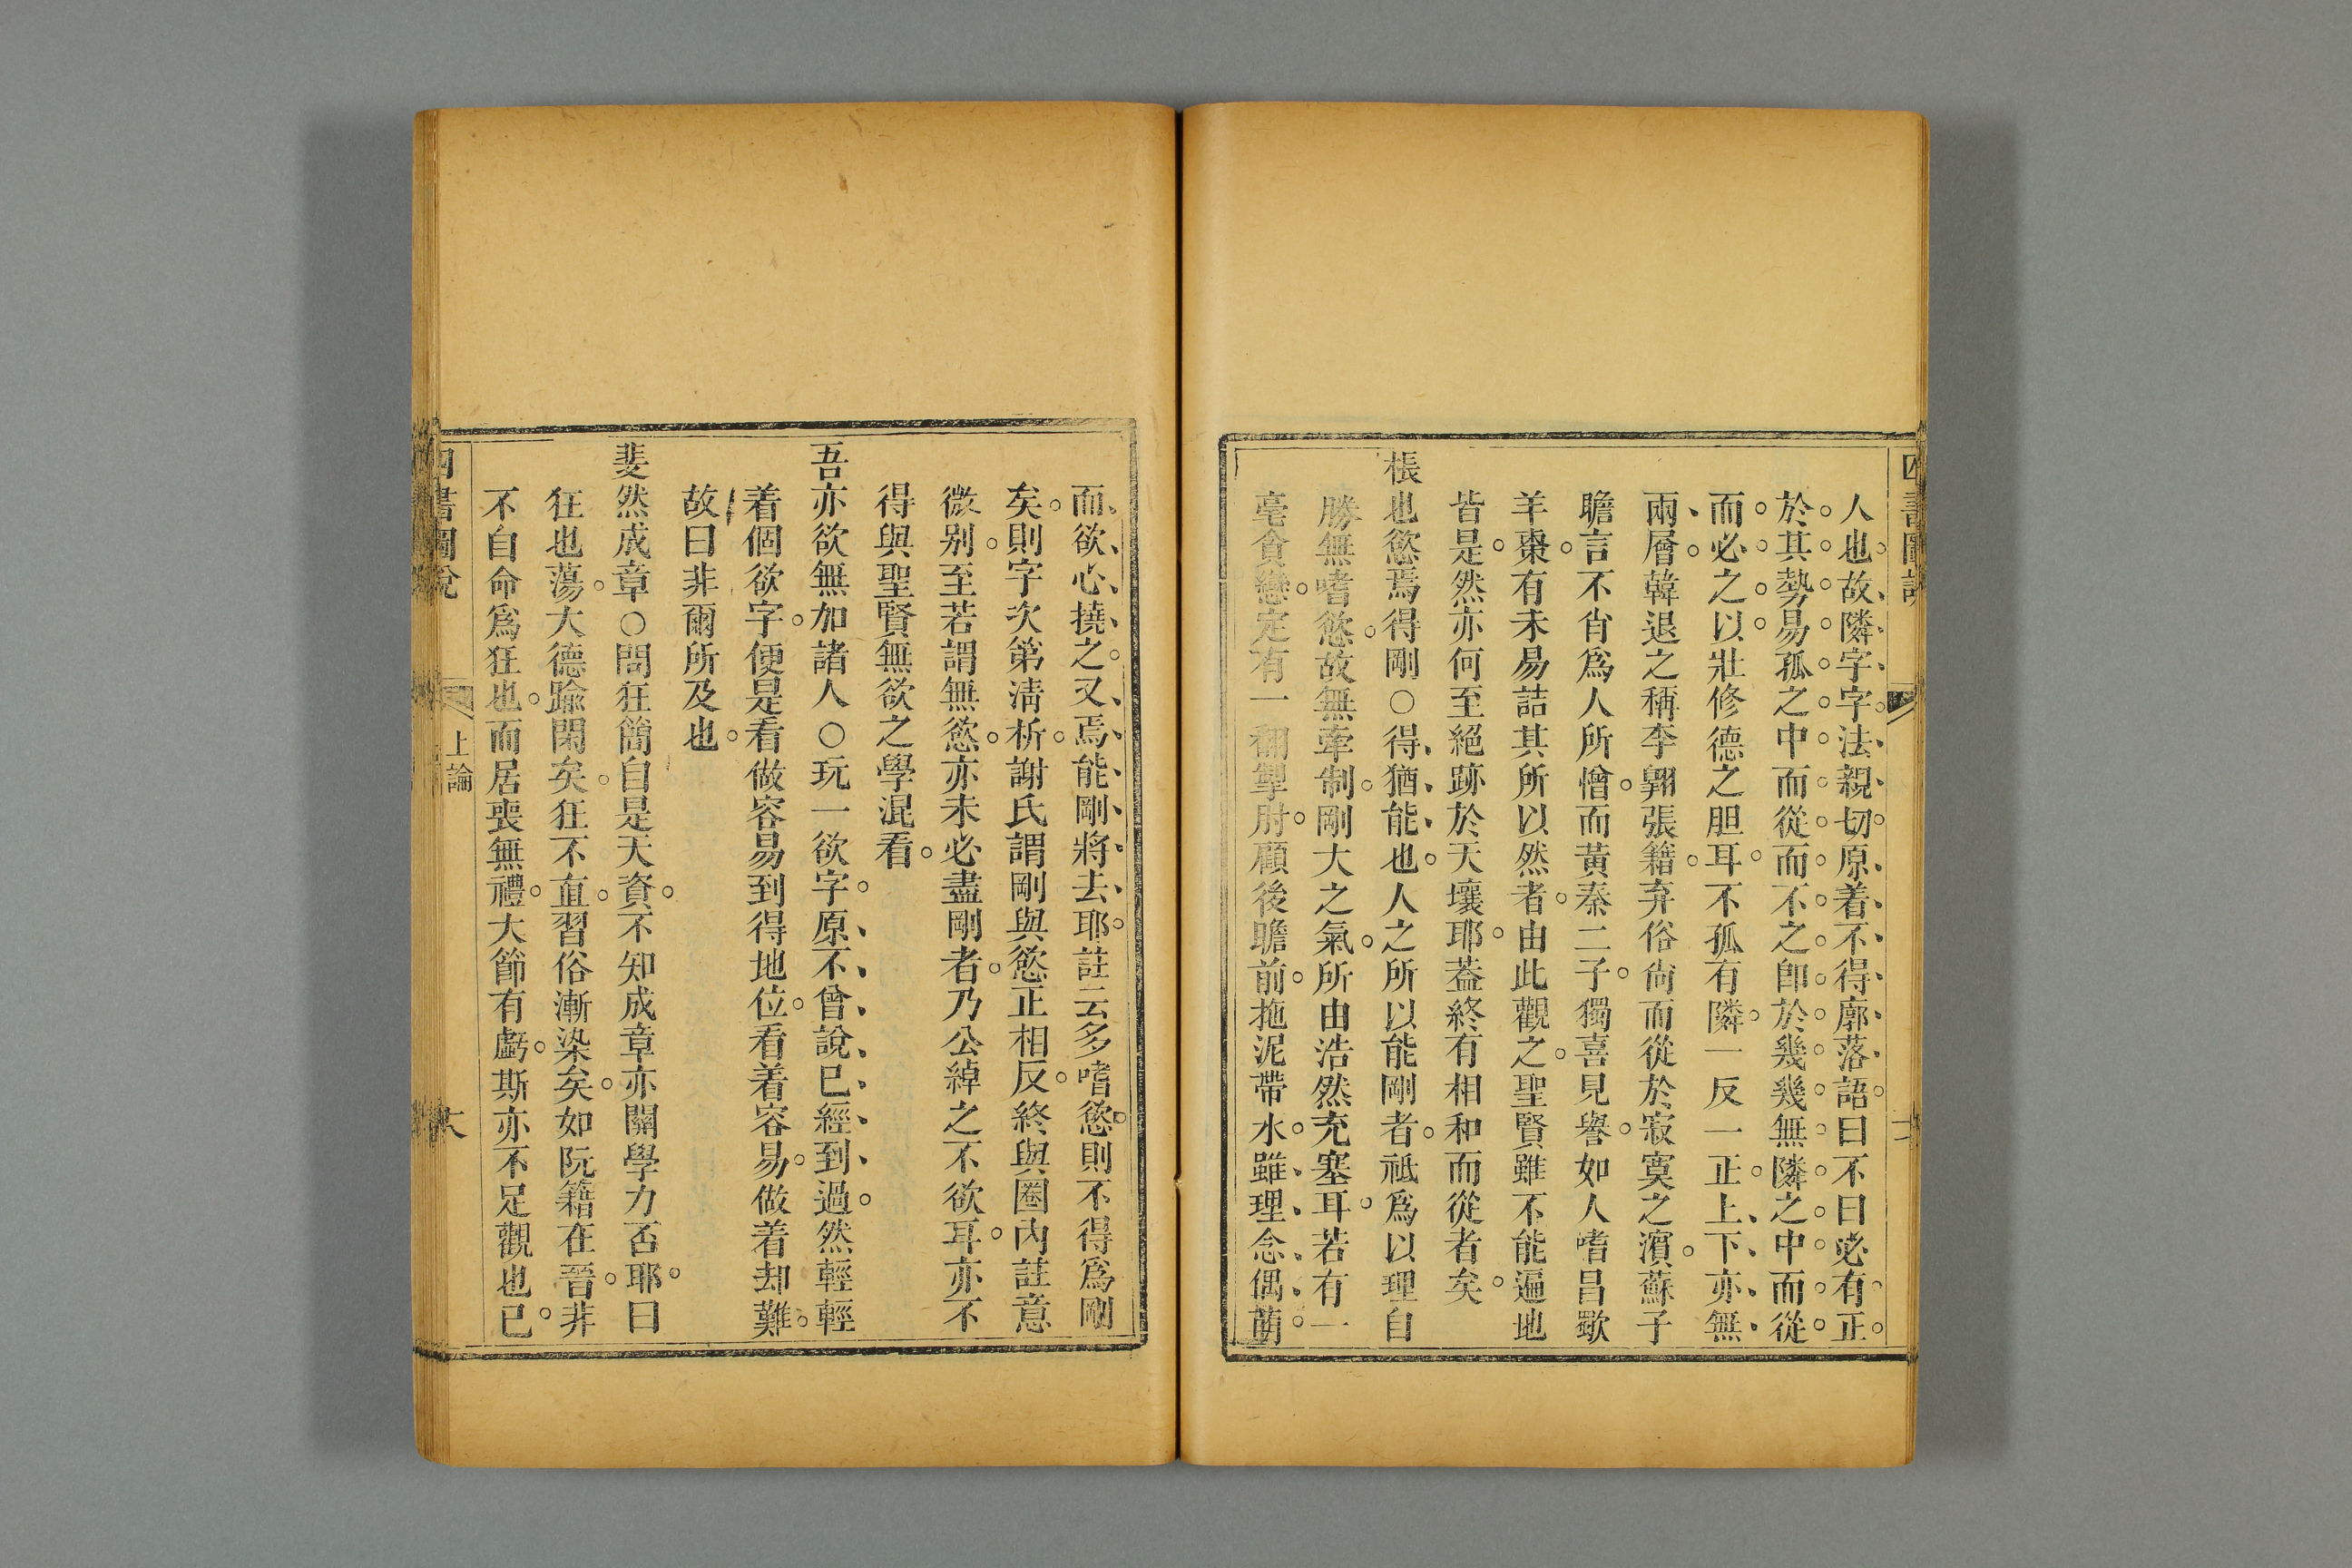 四書圖說
人也故隣字字法親切原着不得廓落語曰不曰必有正
於其勢易孤之中而從而不之卽於幾幾無隣之中而從
而必之以壯修德之胆耳不孤有隣一反一正上下亦無
兩層韓退之稱李翱張籍弃俗尙而從於寂寞之濱蘇子
瞻言不肖爲人所憎而黃秦二子獨喜見譽如人嗜昌歜
羊棗有未易詰其所以然者由此觀之聖賢雖不能遍地
皆是然亦何至絕跡於天壤耶葢終有相和而從者矣
棖也慾焉得剛○得猶能也人之所以能剛者祗爲以理自
勝無嗜慾故無牽制剛大之氣所由浩然充塞耳若有一
毫貪戀定有一翻掣肘顧後瞻前拖泥帶水雖理念偶萌
而欲心撓之又焉能剛將去耶註云多嗜慾則不得爲剛
矣則字次第淸析謝氏謂剛與慾正相反終與圈內註意
微别至若謂無慾亦未必盡剛者乃公綽之不欲耳亦不
得與聖賢無欲之學混看
吾亦欲無加諸人○玩一欲字原不曾說已經到過然輕輕
着個欲字便是看做容易到得地位看着容易做着却難
故曰非爾所及也
斐然成章○問狂簡自是天資不知成章亦關學力否耶曰
狂也蕩大德踰閑矣狂不直習俗漸染矣如阮籍在晉非
不自命爲狂也而居喪無禮大節有虧斯亦不足觀也已
四書圖說 上論 十六